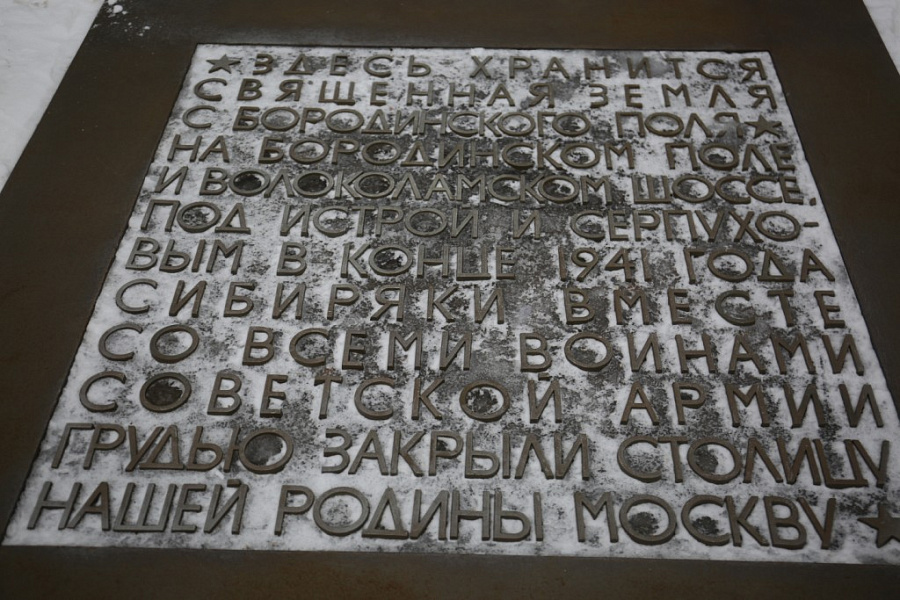 ★ ЗДЕСЬ ХРАНИТСЯ
СВЯЩЕННАЯ ЗЕМЛЯ
С БОРОДИНСКОГО ПОЛЯ ★
НА БОРОДИНСКОМ ПОЛЕ
И ВОЛОКОЛАМСКОМ ШОССЕ,
ПОД ИСТРОЙ И СЕРПУХО-
ВЫМ В КОНЦЕ 1941 ГОДА
СИБИРЯКИ ВМЕСТЕ
СО ВСЕМИ ВОИНАМИ
СОВЕТСКОЙ АРМИИ
ГРУДЬЮ ЗАКРЫЛИ СТОЛИЦУ
НАШЕЙ РОДИНЫ МОСКВУ ★